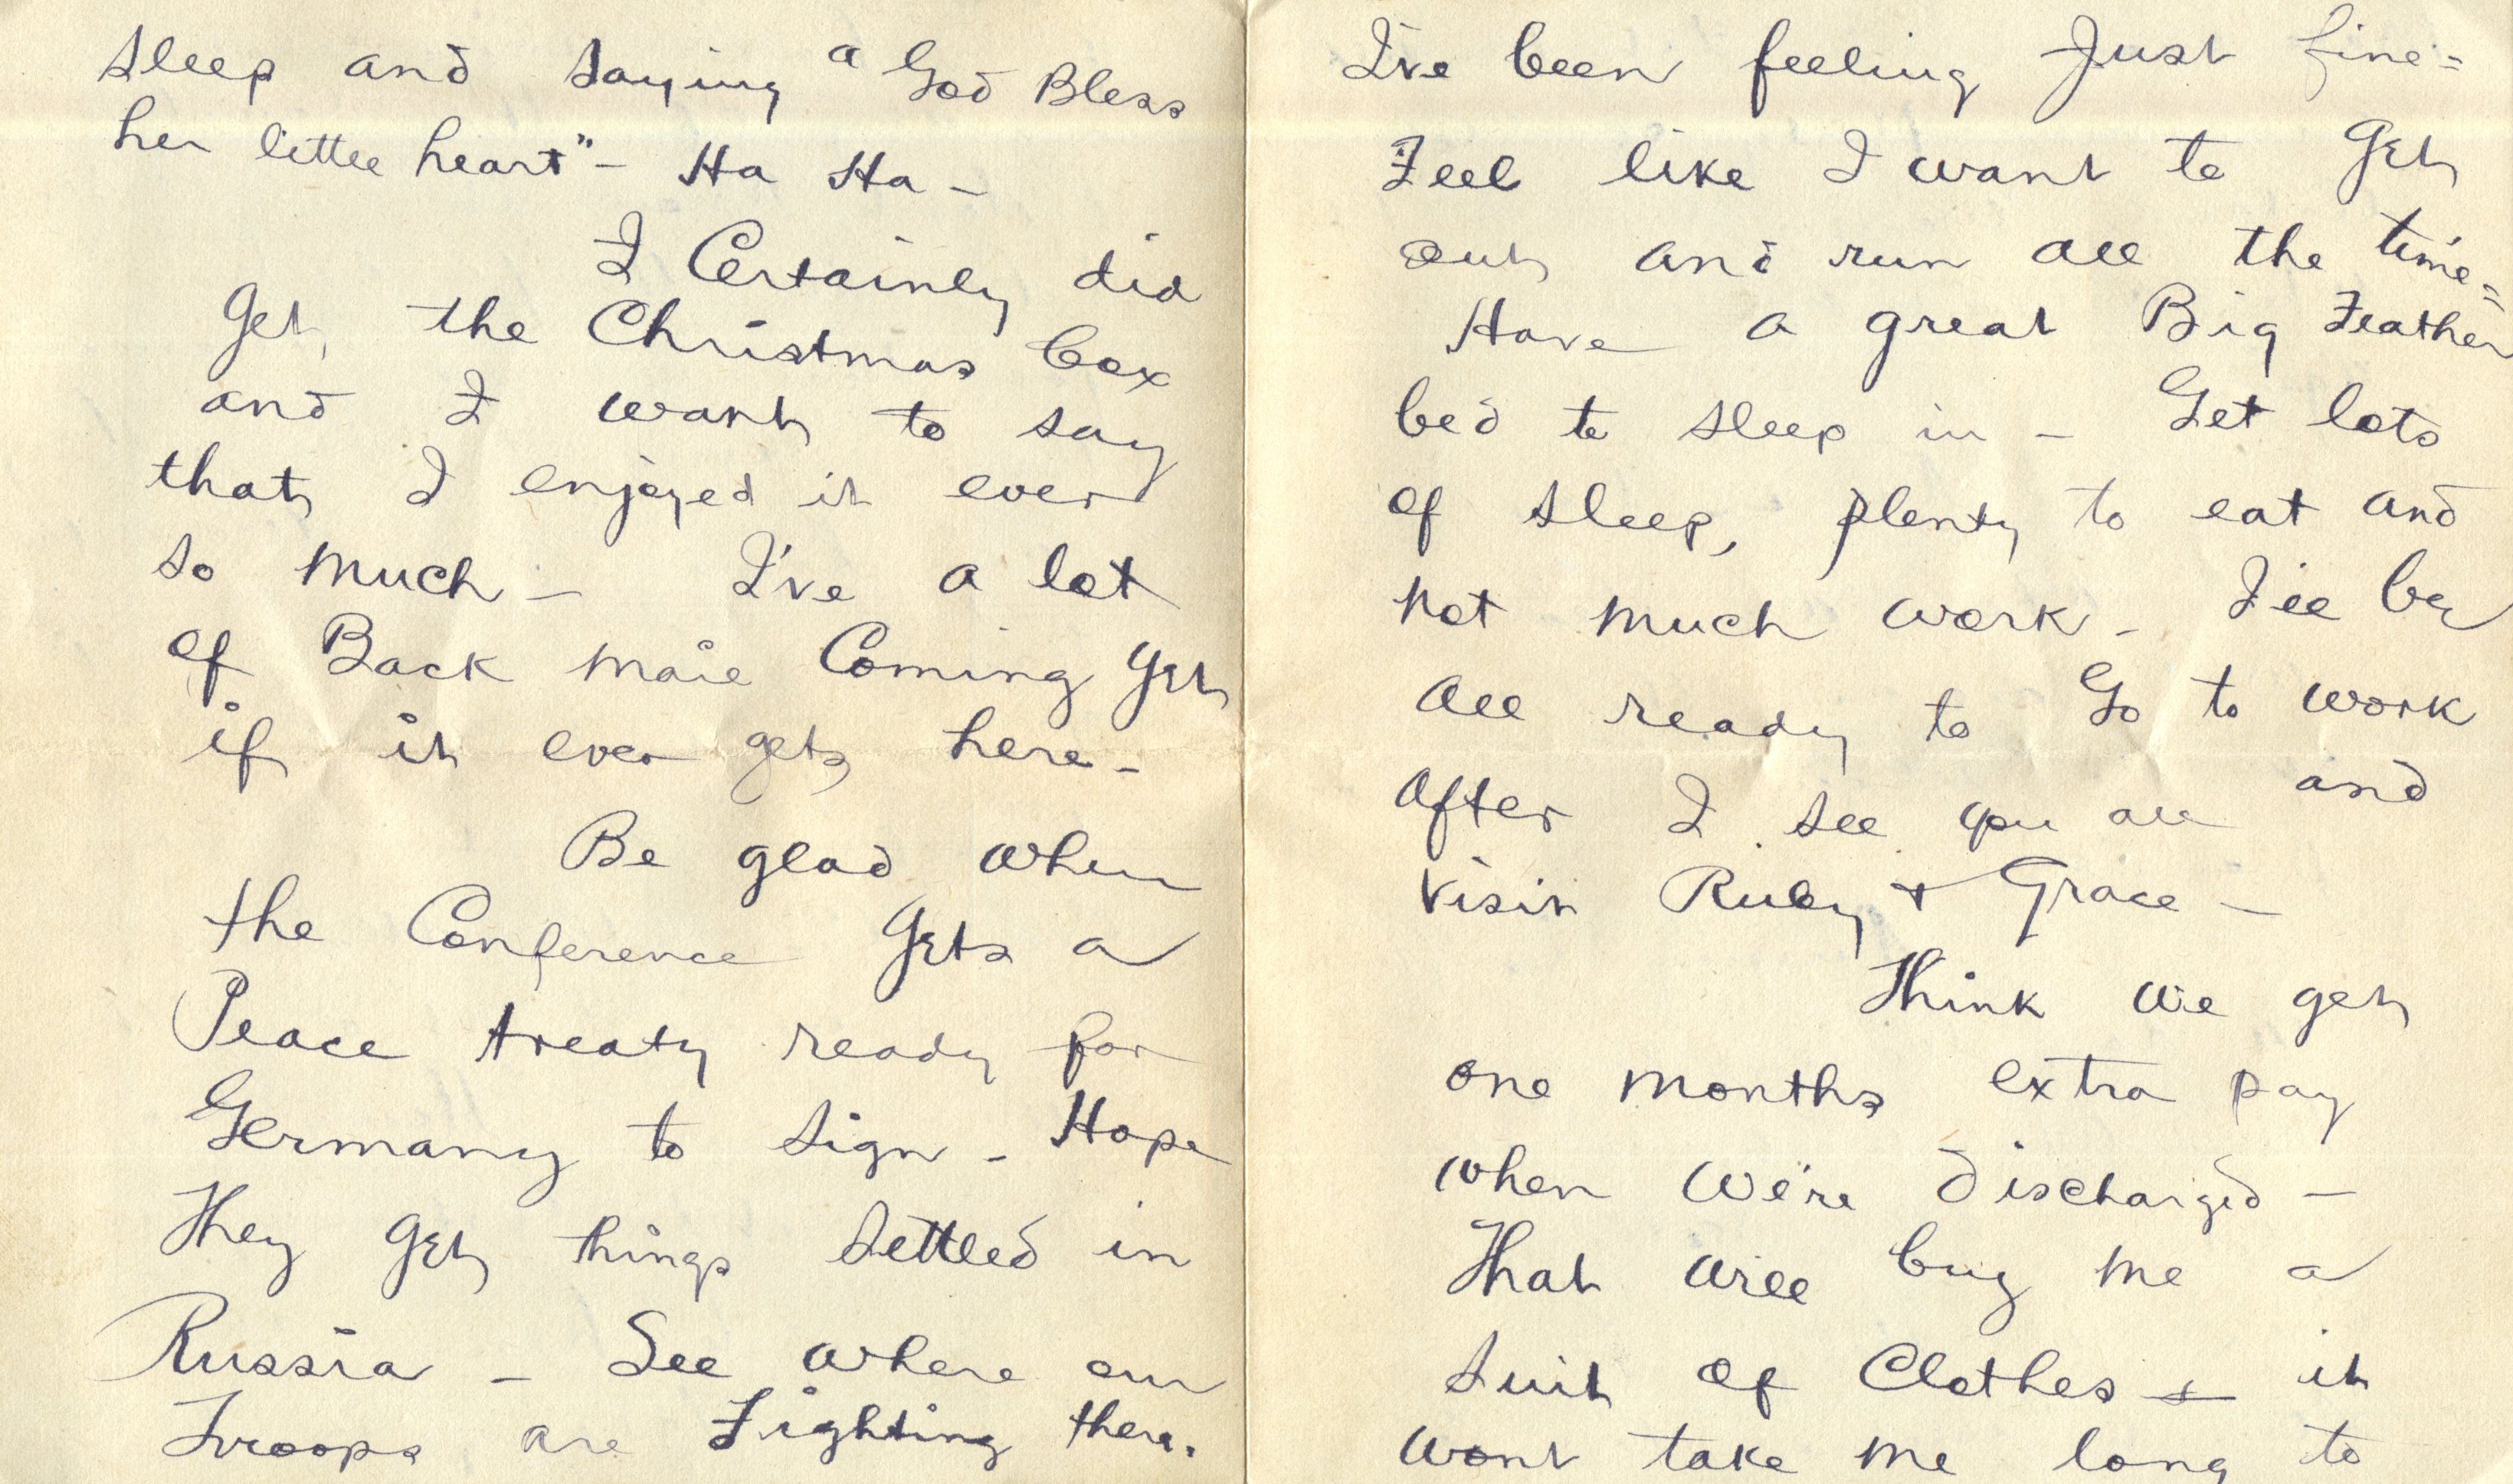 sleep and saying "God Bless
her little heart" - Ha Ha -
I Certainly did
get the Christmas box
and I want to say
that I enjoyed it ever
so much - I've a lot
of Back mail Coming yet
if it ever gets here -
Be glad when
the Conference gets a
Peace treaty ready for
Germany to sign - Hope
They get things settled in
Russia - See where our
Troops are Fighting there.
I've been feeling Just fine =
Feel like I want to get
out and run all the time =
Have a great Big Feather
bed to sleep in - Get lots
of sleep, plenty to eat and
not much work - I'll be
all ready to Go to work
after I see you all and
visit Ruby + Grace -
Think we get
one months extra pay
when we're discharged -
That will buy me a
suit of Clothes + it
wont take me long to